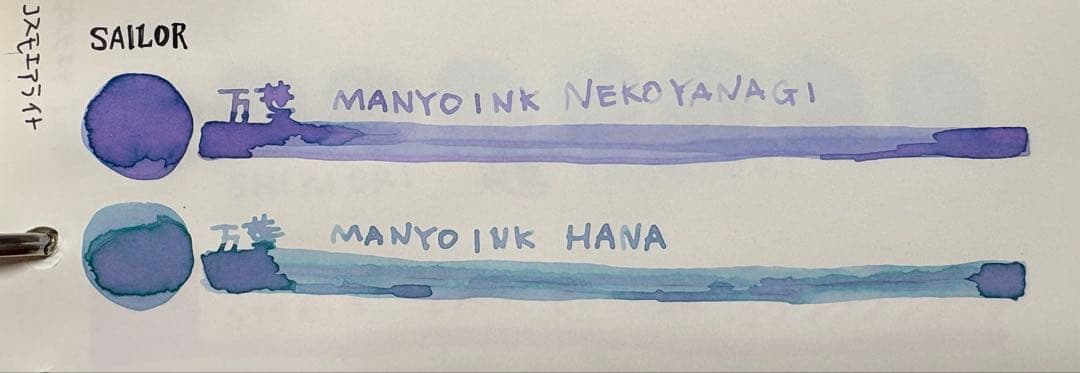 コスモエアライト
SAILOR
万葉 MANYO INK NEKOYANAGI
万葉 MANYO INK HANA